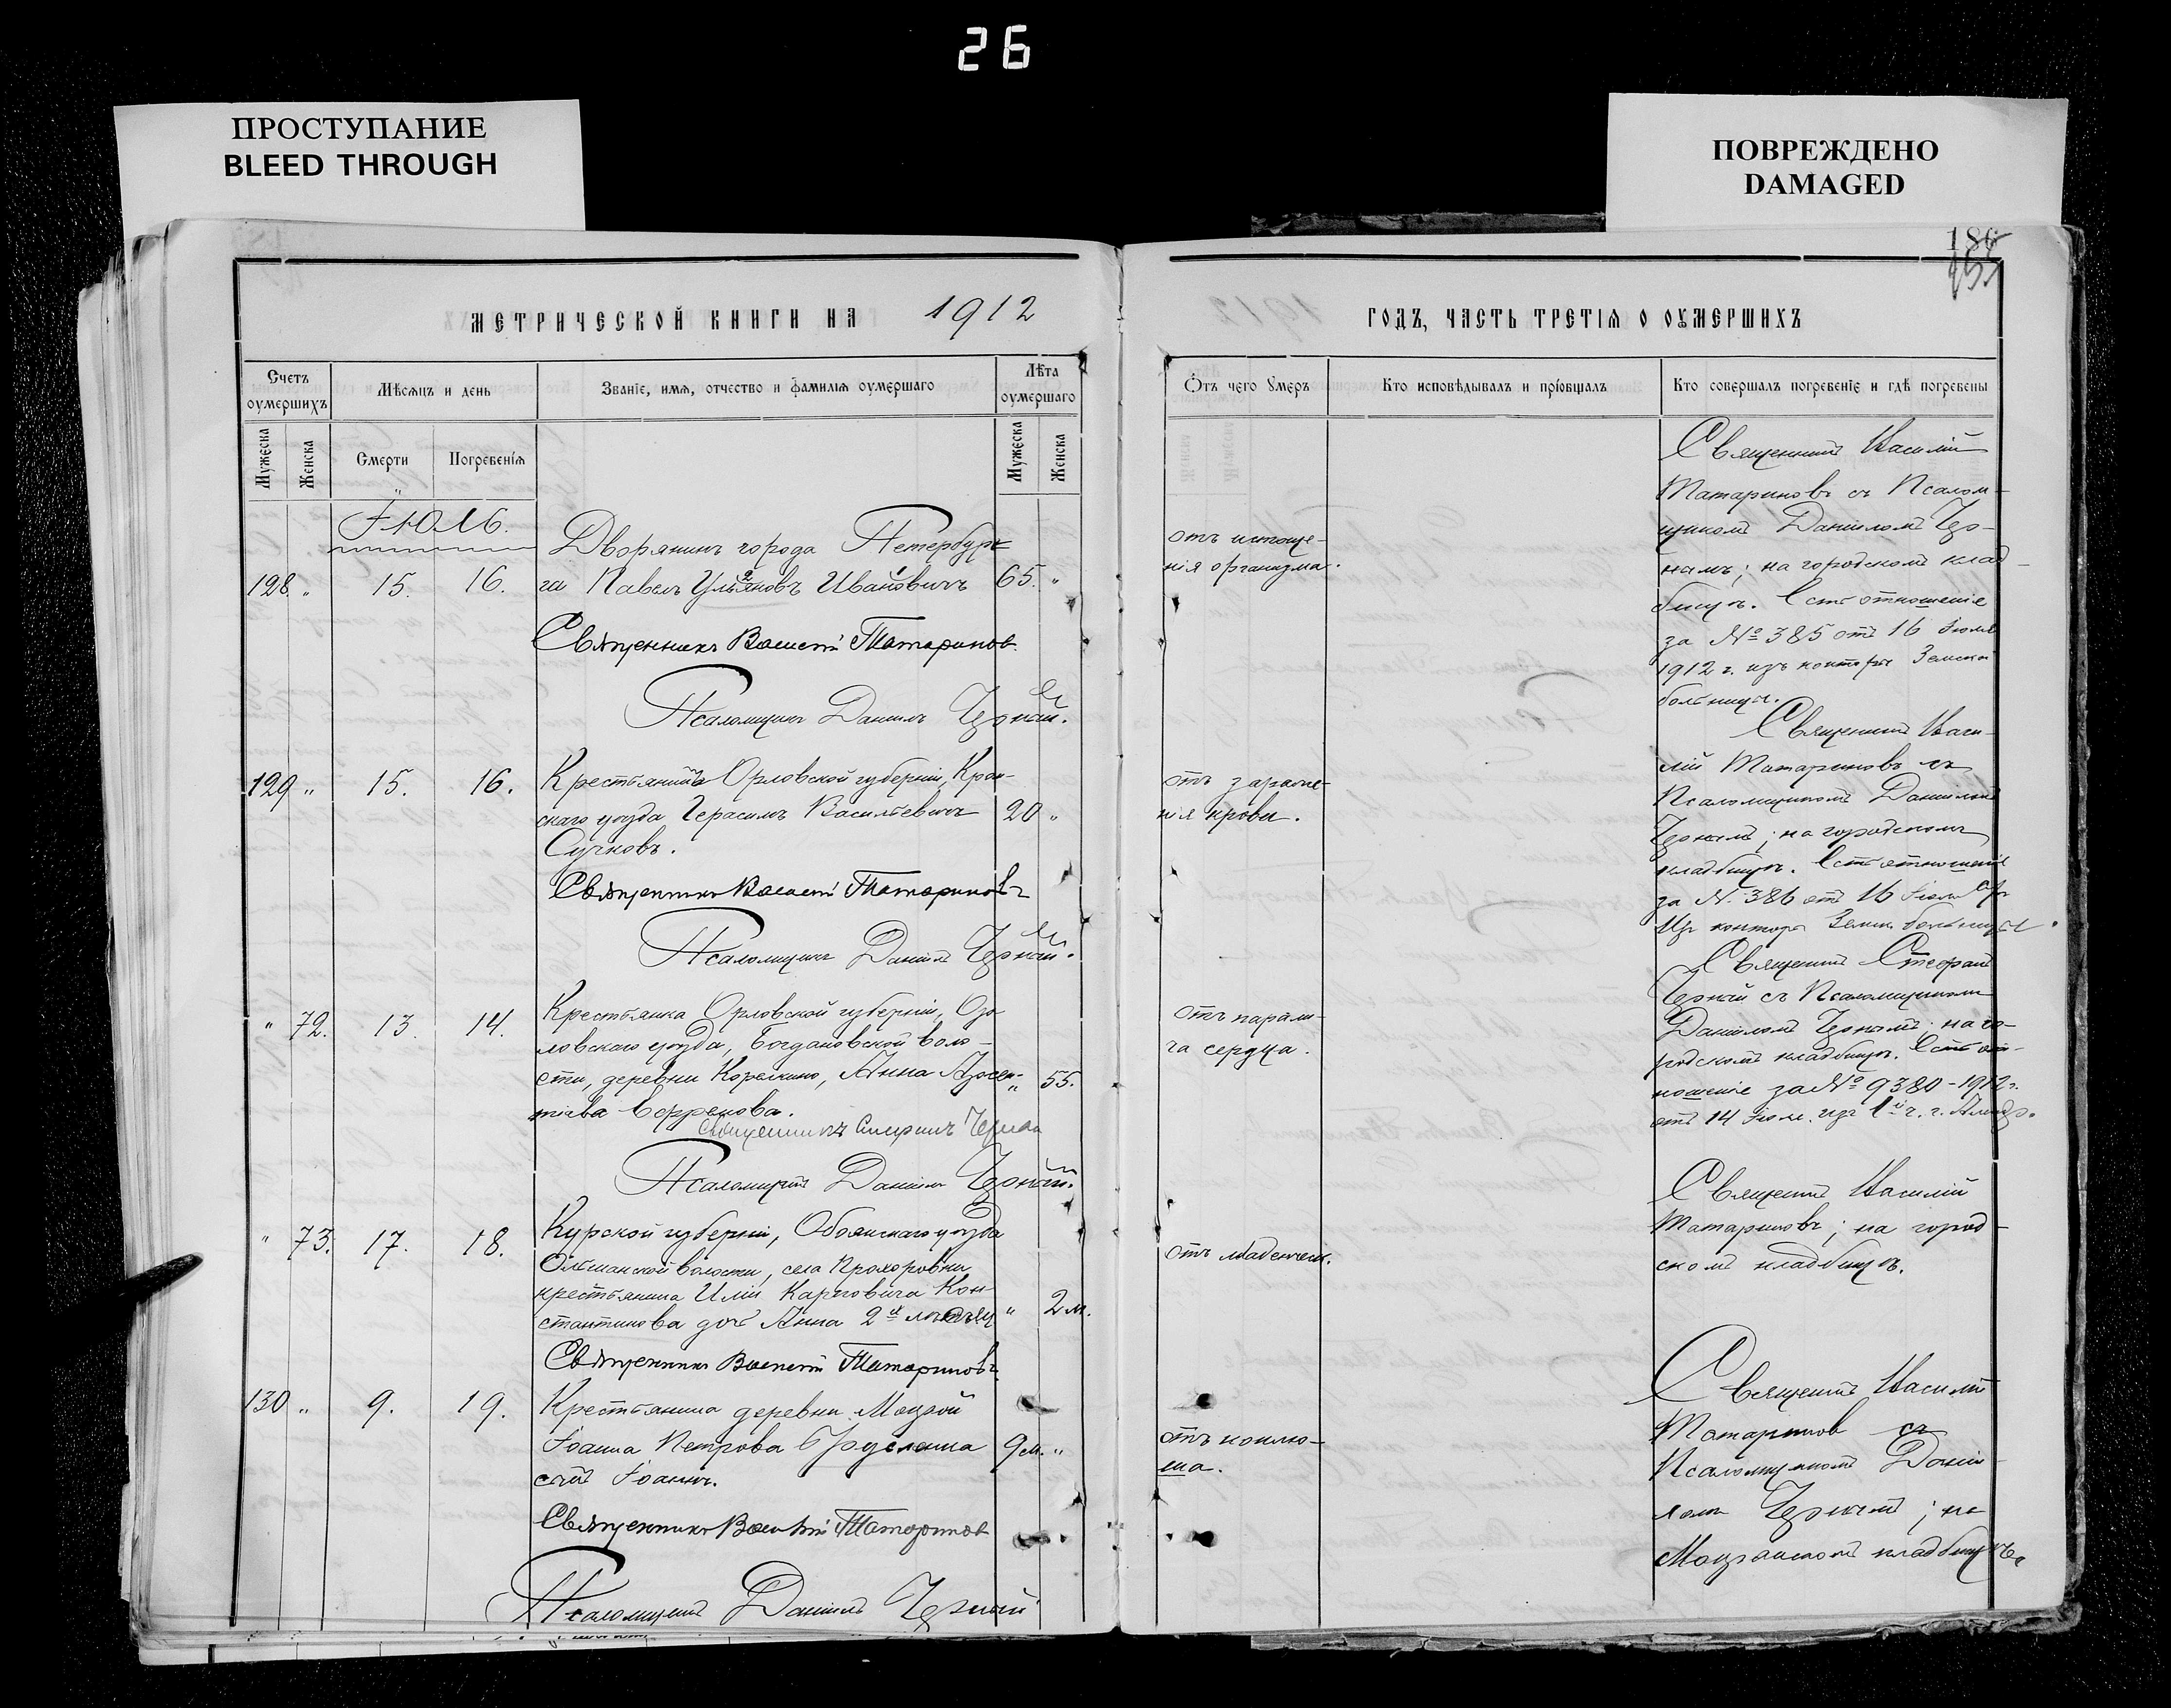 26
ПРОСТУПАНИЕ
BLEED THROUGH
ПОВРЕЖДЕНО
DAMAGED
186
МЕТРИЧЕСКОЙ КНИГИ НА 1912
Счетъ оумершихъ
Мѣсяцъ и день
Званіе, имя, отчество и фамилія оумершаго
Лѣта оумершаго
Мужеска
Женска
Смерти
Погребенія
Мужеска
Женска
Іюль.
Дворянинъ города Петербур-
128 " 15. 16. га Павелъ Ульяновъ Ивановичъ 65. "
Священникъ Василій Татариновъ
Псаломщикъ Даніилъ Черный.
129 " 15. 16. Крестьянинъ Орловской губерніи, Кром-
скаго уѣзда Герасимъ Васильевичъ 20 "
Сучковъ.
Священникъ Василій Татариновъ
Псаломщикъ Даніилъ Черный.
" 72. 13. 14. Крестьянка Орловской губерніи,
ловскаго уѣзда, Богдановской воло-
сти, деревни Анна " 55.
Священникъ Стефанъ Черный
Псаломщикъ Даніилъ Черный.
" 73. 17. 18. Курской губерніи, Обоянскаго уѣзда
Ольшанской волости, села Прохоровки
крестьянина Иліи Карповича Кон-
стантинова дочь Анна 2хъ мѣсяц " 2 м.
Священникъ Василій Татариновъ
130 " 9. 19. Крестьянина деревни
Іоанна Петрова 9 м. "
сынъ Іоаннъ.
Священникъ Василій Татариновъ
Псаломщикъ Даніилъ Черный
ГОДЪ, ЧАСТЬ ТРЕТІЯ О ОУМЕРШИХЪ
Отъ чего умеръ
Кто исповѣдывалъ и пріобщалъ
Кто совершалъ погребеніе и гдѣ погребены
отъ истоще-
нія организма.
Священникъ Василій
Татариновъ съ Псалом-
щикомъ Даніиломъ Чер-
нымъ; на городскомъ клад-
бищѣ. Есть отношеніе
за № 385 отъ 16 Іюля
1912 г. изъ конторы Земской
больницы.
отъ зараже-
нія крови.
Священникъ Васи-
лій Татариновъ съ
Псаломщикомъ Даніиломъ
Чернымъ; на городскомъ
кладбищѣ. Есть отношеніе
за № 386 отъ 16 Іюля
Изъ конторы Земск. больницы.
отъ парали-
ча сердца.
Священникъ Стефанъ
Черный съ Псаломщикомъ
Даніиломъ Чернымъ; на го-
родскомъ кладбищѣ. Есть от-
ношеніе за № 9380 - 1912 г.
отъ 14 Іюл. изъ
отъ младенческ.
Священникъ Василій
Татариновъ; на город-
скомъ кладбищѣ.
отъ коклю-
ша.
Священникъ Василій
Татариновъ съ
Псаломщикомъ Даніи-
ломъ Чернымъ; на
кладбищѣ.